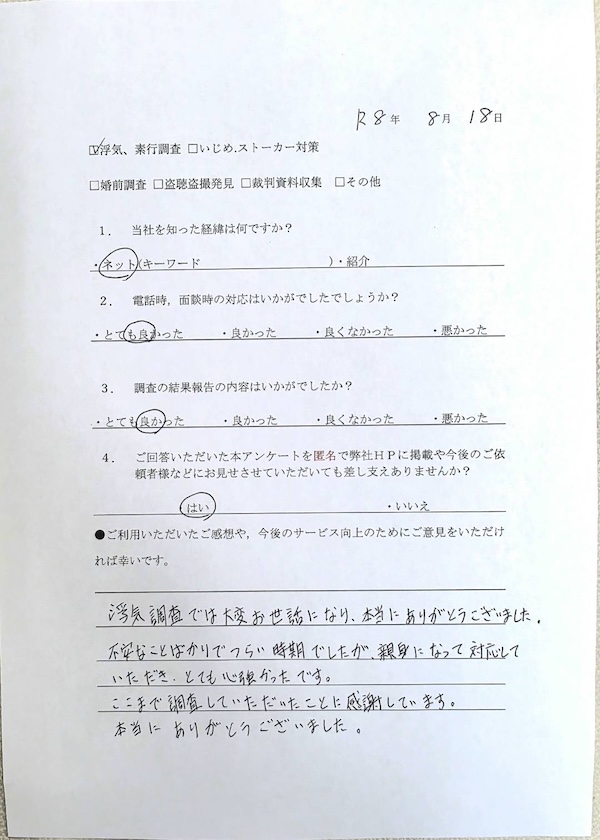 R8年 8月 18日
☑浮気、素行調査 □いじめ.ストーカー対策
□婚前調査 □盗聴盗撮発見 □裁判資料収集 □その他
1. 当社を知った経緯は何ですか？
・ネット(キーワード )・紹介
2. 電話時，面談時の対応はいかがでしたでしょうか？
・とても良かった ・良かった ・良くなかった ・悪かった
3. 調査の結果報告の内容はいかがでしたか？
・とても良かった ・良かった ・良くなかった ・悪かった
4. ご回答いただいた本アンケートを匿名で弊社ＨＰに掲載や今後のご依
頼者様などにお見せさせていただいても差し支えありませんか？
はい ・いいえ
●ご利用いただいたご感想や，今後のサービス向上のためにご意見をいただけ
れば幸いです。
浮気調査では大変お世話になり、本当にありがとうございました。
不安なことばかりでつらい時期でしたが、親身になって対応して
いただき、とても心強かったです。
ここまで調査していただいたことに感謝しています。
本当にありがとうございました。